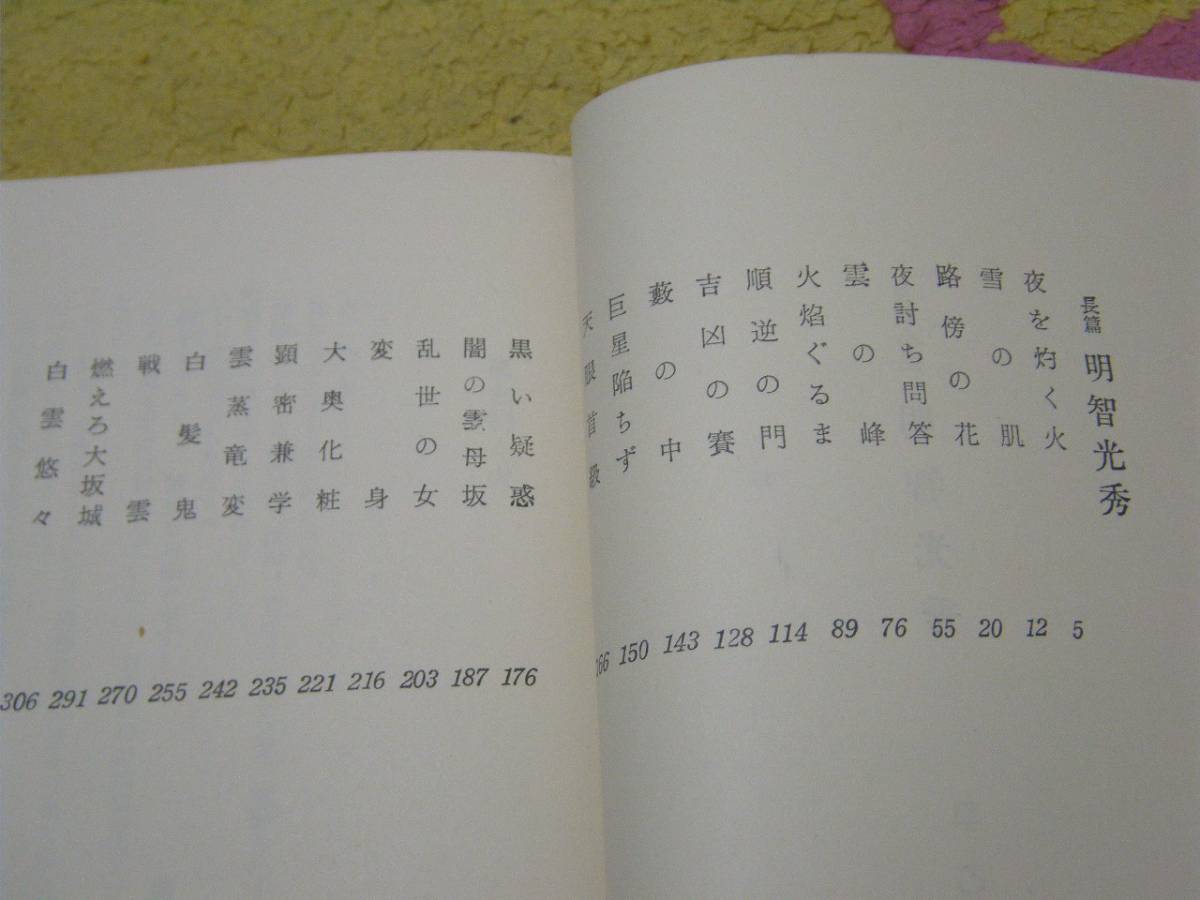 長篇 明智光秀
夜を灼く火 5
雪の肌 12
路傍の花 20
夜討ち問答 55
雲の峰 76
火焰ぐるま 89
順逆の門 114
吉凶の賽 128
藪の中 143
巨星陥ちず 150
天眼首級 166
黒い疑惑 176
闇の雲母坂 187
乱世の女 203
変身 216
大奥化粧 221
顕密兼学 235
雲蒸竜変 242
白髪鬼 255
戦雲 270
燃えろ大坂城 291
白雲悠々 306